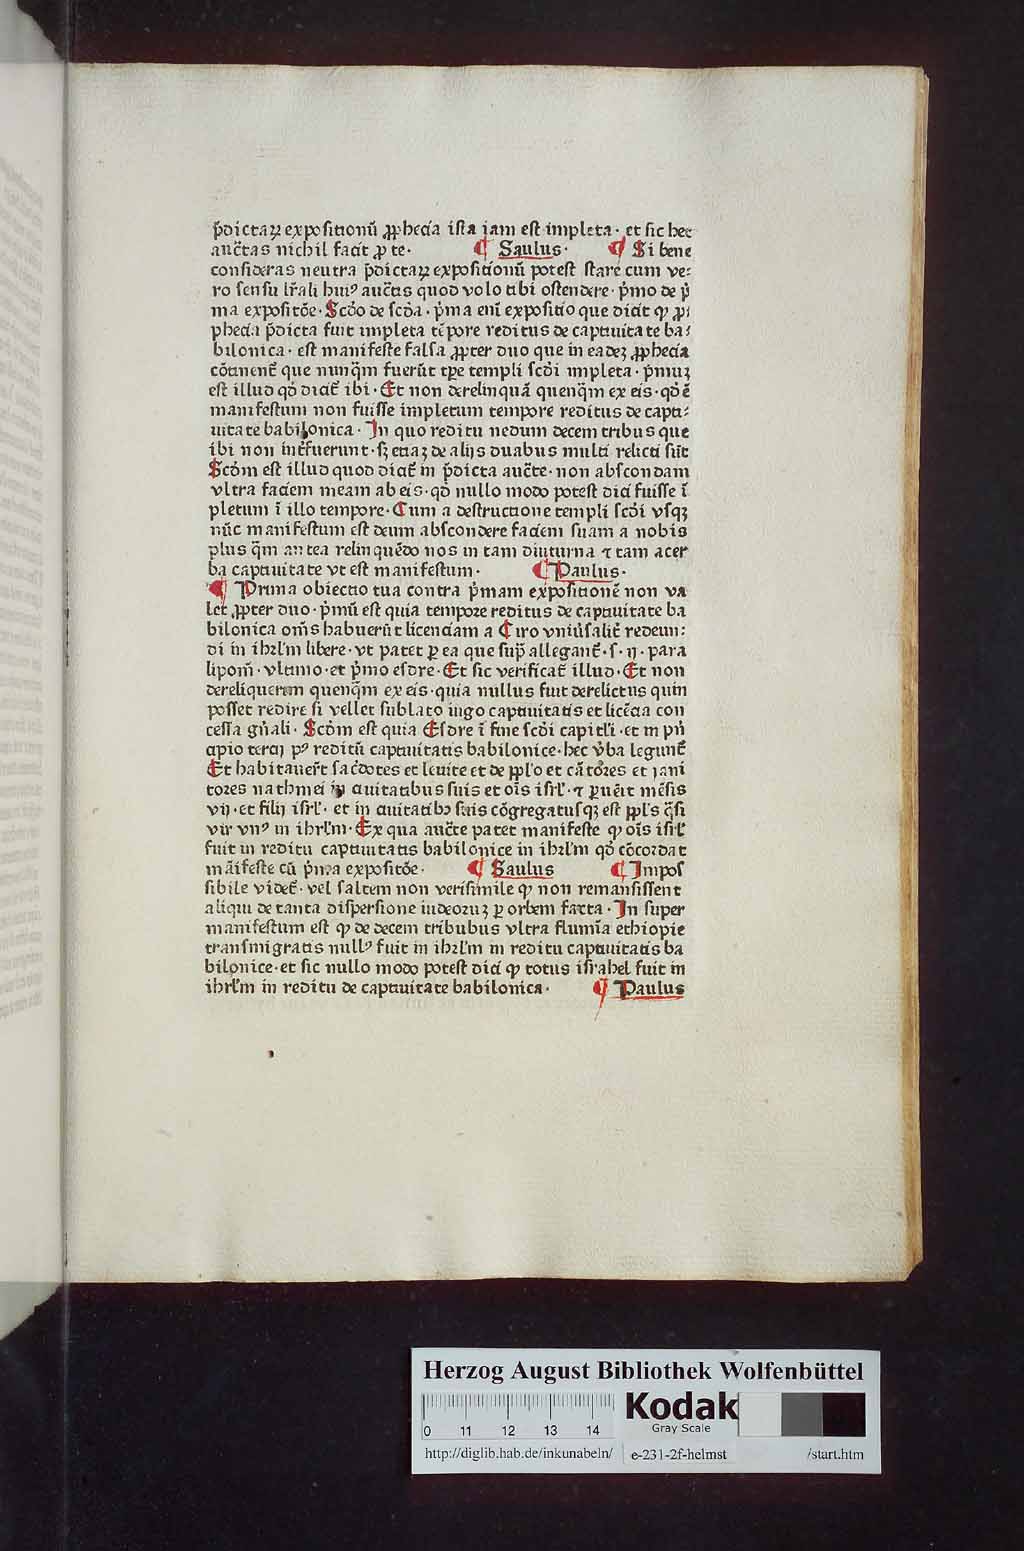 p̄dictaꝝ expositionū ꝓphecia ista iam est impleta · et sic hec
auc̄tas nichil facit ꝓ te · ¶ Saulus · ¶ Si bene
consideras neutra p̄dictaꝝ expositionū potest stare cum ve⸗
ro sensu lr̄ali huiꝰ auc̄tis quod volo tibi ostendere · p̄mo de p̄
ma expositōe · Scđo de scđa · p̄ma eni expositio que dicit ꝙ ꝓ⸗
phecia p̄dicta fuit impleta tēpore reditus de captiuitate ba⸗
bilonica · est manifeste falsa ꝓpter duo que in eadeʒ ꝓphecia
cōtinent̄ que nunq̄m fuerūt tp̄e templi scđi impleta · p̄muʒ
est illud qđ dicit̄ ibi · Et non derelinquā quenq̄m ex eis · qđ ē
manifestum non fuisse impletum tempore reditus de capti⸗
uitate babilonica · In quo reditu nedum decem tribus que
ibi non int̄fuerunt · sʒ etiaʒ de alijs duabus multi relicti sūt
Scđm est illud quod dicit̄ in p̄dicta auc̄te · non abscondam
vltra faciem meam ab eis · qđ nullo modo potest dici fuisse ī
pletum ī illo tempore · Cum a destructione templi scđi vsqʒ
nūc manifestum est deum abscondere faciem suam a nobis
plus q̄m antea relinquēdo nos in tam diuturna ⁊ tam acer
ba captiuitate vt est manifestum · ¶ Paulus ·
¶ Prima obiectio tua contra p̄mam expositionē non va
let ꝓpter duo · p̄mū est quia tempore reditus de captiuitate ba
bilonica om̄s habuerūt licenciam a Ciro vniūsalit̄ redeun⸗
di in ihrl̄m libere · vt patet ꝑ ea que sup̄ allegant̄ · s · ij · para
lipom̄ · vltimo · et p̄mo esdre · Et sic verificat̄ illud · Et non
dereliquerim quenq̄m ex eis · quia nullus fuit derelictus quin
posset redire si vellet sublato iugo captiuitatis et licēcia con
cessa gn̄ali · Scđm est quia Esdre ī fine scđi capitl̄i · et in prī
cipio tercij pꝰ reditū captiuitatis babilonice · hec v̄ba legunt̄
Et habitauer̄t sac̄dotes et leuite et de ppl̄o et cātores et iani
tores nathinei in ciuitatibus suis et oīs isrl̄ · ⁊ ꝑuēit mēsis
vij · et filij isrl̄ · et in ciuitatibꝫ suis cōgregatusqʒ est ppl̄s q̄si
vir vnꝰ in ihrl̄m · Ex qua auc̄te patet manifeste ꝙ oīs isrl̄
fuit in reditu captiuitatis babilonice in ihrl̄m qđ cōcordat
māifeste cū p̄ma expositōe · ¶ Saulus ¶ Impos
sibile videt̄ · vel saltem non verisimile ꝙ non remansissent
aliqui de tanta dispersione iudeoruʒ ꝑ orbem facta · In super
manifestum est ꝙ de decem tribubus vltra flumīa ethiopie
transmigratis nullꝰ fuit in ihrl̄m in reditu captiuitatis ba
bilonice · et sic nullo modo potest dici ꝙ totus israhel fuit in
ihrl̄m in reditu de captiuitate babilonica · ¶ Paulus
Herzog August Bibliothek Wolfenbüttel
0 11 12 13 14
Kodak
Gray Scale
http://diglib.hab.de/inkunabeln/ e-231-2f-helmst /start.htm